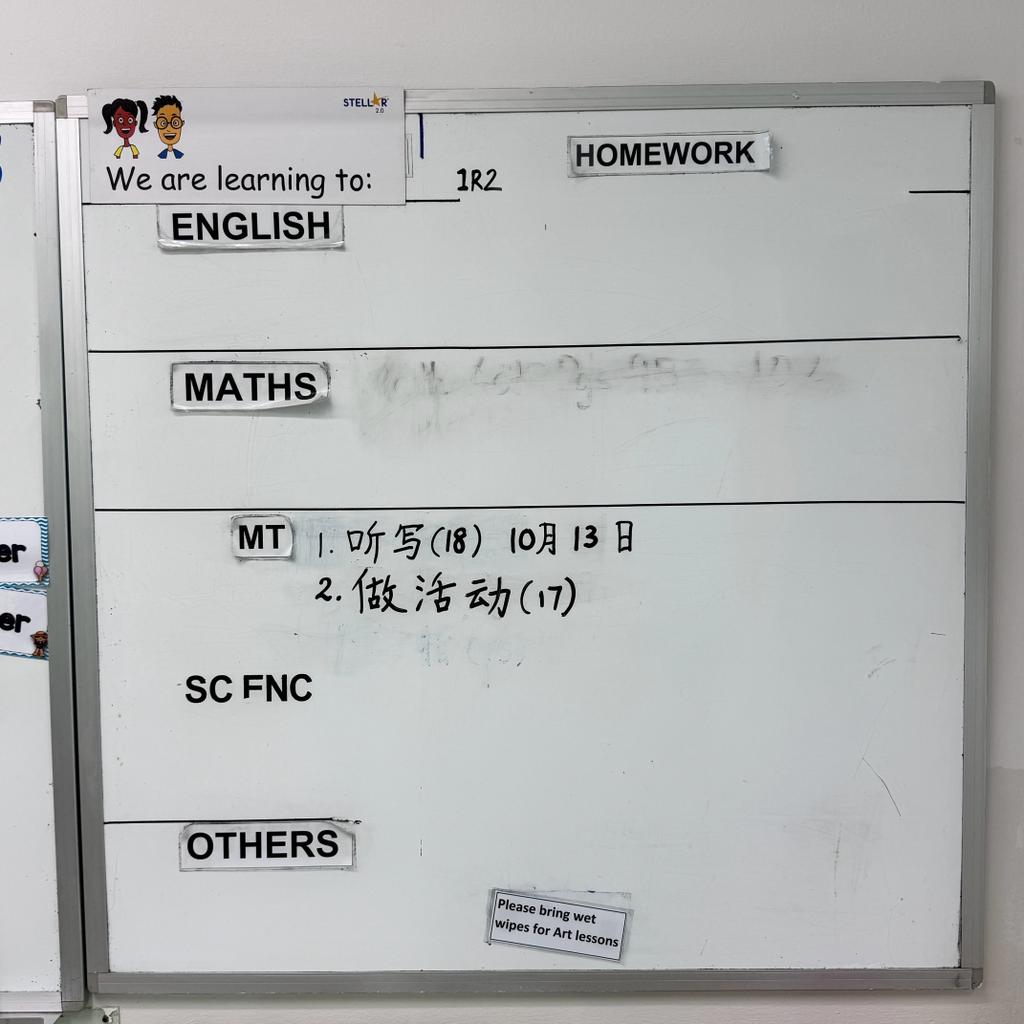 STELLAR
2.0
We are learning to:
1R2
HOMEWORK
ENGLISH
MATHS
MT
1. 听写(18) 10月13日
2. 做活动(17)
SC FNC
OTHERS
Please bring wet
wipes for Art lessons
er
er